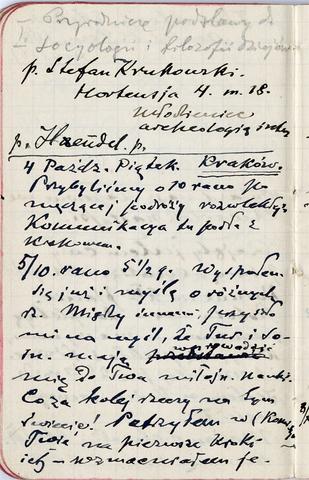 – Przyrodnicze podstawy do
– Socyologii i filozofii dziejów
p. Stefan Krukowski.
Hortensja 4. m. 18.
Młodzieniec
archeologią
p. Haendel. p.
4 Paźdz. Piątek. Kraków.
Przybyliśmy o 10 rano po
męczącej podróży
Komunikacya tu podła z
Krakowem.
5/10. rano 5 1/2 g. Wyspałem
się już i myślę o różnych
rz. Między innemi, przyszło
mi na myśl, że Tuś i
mają wprowadzić
nię do Twa miłośn. nauki.
Co za kolej rzeczy na tym
świecie! Patrzyłem w (Kom
Twie na pierwsze kroki
ich – wzmacniałem je.